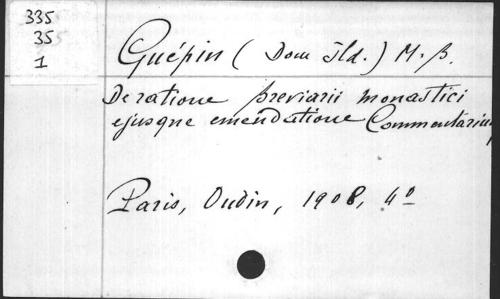 335
35
1
Guépin ( Dom Ild. ) M. B.
De ratione breviarii monastici
ejusque emendatione Commentarius
Paris, Oudin, 1908, 4º